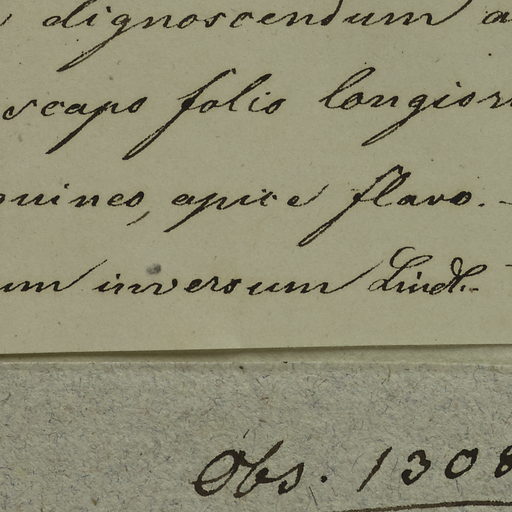 dignoscendum
scapo folio longiori
guineo, apice flavo. -
um inversum Lindl. -
Obs. 1308